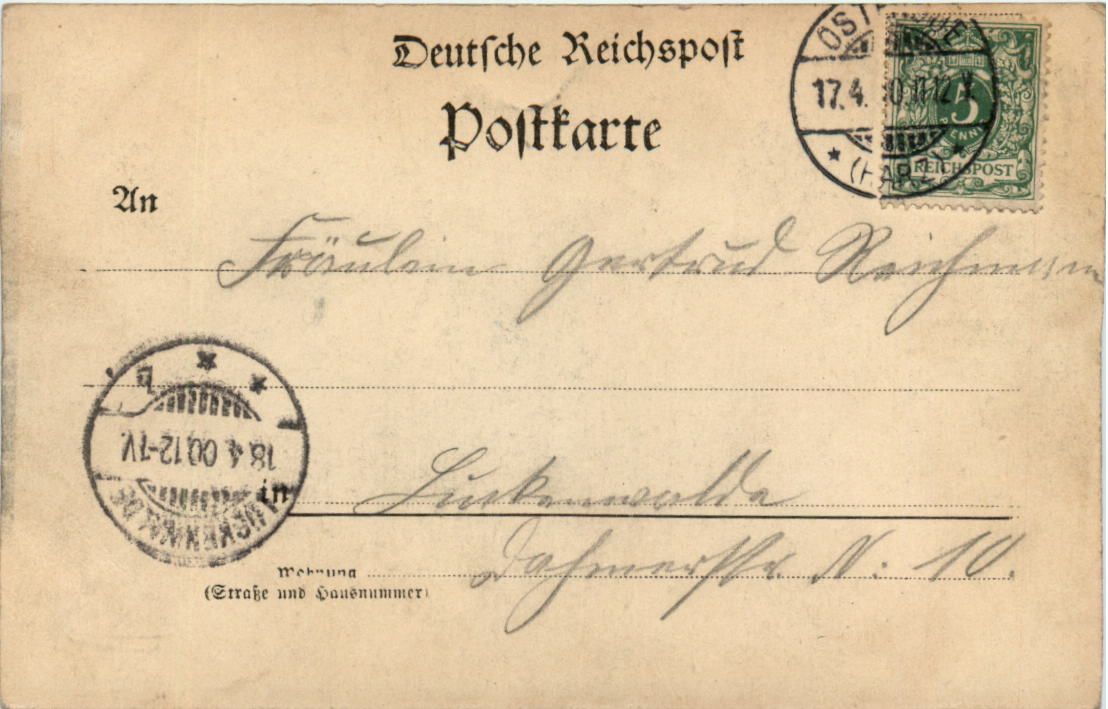 Deutsche Reichspost
Postkarte
17.4. 00.11-12 V.
(HARZ)
5
PFENNIG
REICHSPOST
An
Fräulein Gertrud Reichmann
18.4.00.12-7V.
LUCKENWALDE
in Luckenwalde
Wohnung Dahmerstr. N: 10.
(Straße und Hausnummer)